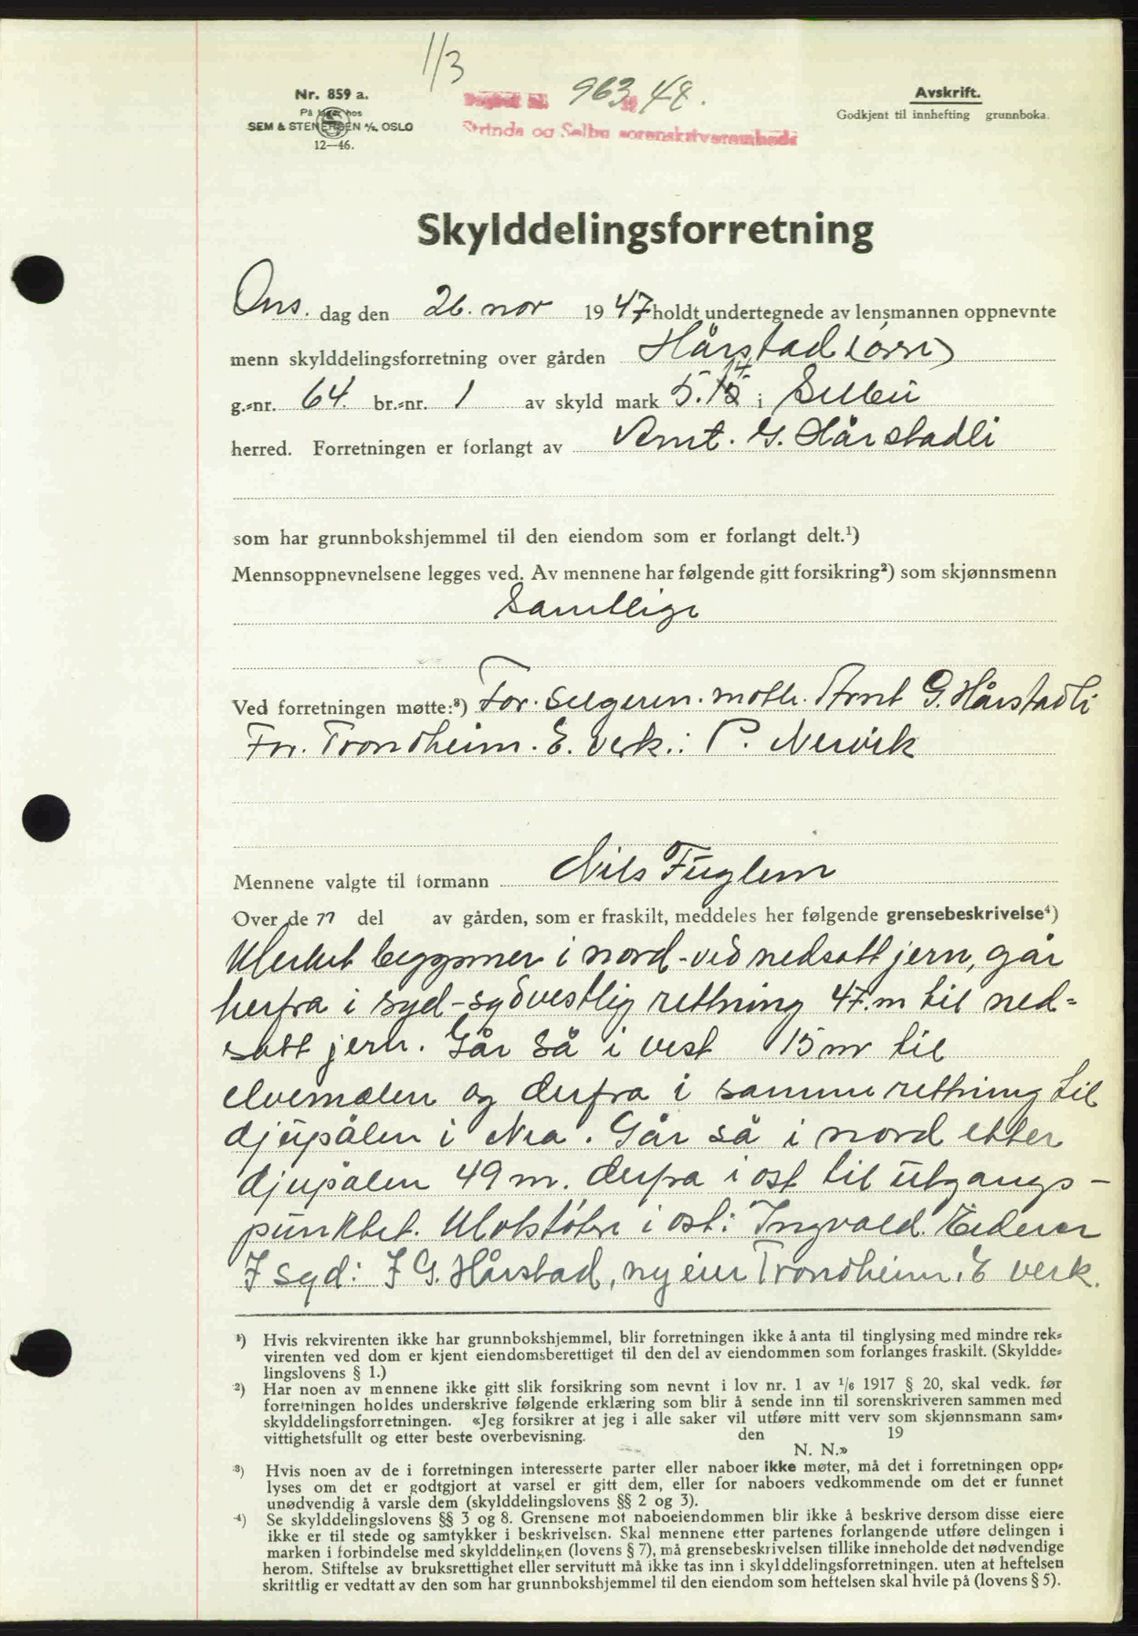 1/3
Nr. 859 a.
På lager hos
SEM & STENERSEN A/S. OSLO
12—46.
Dagbok nr. 963 19 48.
Strinda og Selbu sorenskriverembede
Avskrift.
Godkjent til innhefting grunnboka.
Skylddelingsforretning
Ons. dag den 26. nov 1947 holdt undertegnede av lensmannen oppnevnte
menn skylddelingsforretning over gården Hårstad
g.-nr. 64. br.-nr. 1 av skyld mark 5. i Selbu
herred. Forretningen er forlangt av Arnt. G. Hårstadli
som har grunnbokshjemmel til den eiendom som er forlangt delt.¹)
Mennsoppnevnelsene legges ved. Av mennene har følgende gitt forsikring²) som skjønnsmenn
Samtlige
Ved forretningen møtte:³) For. selgeren. møtte. Arnt G. Hårstadli
For. Trondheim. E. verk.: P. Nervik
Mennene valgte til formann Nils Fuglem
Over de 77 del av gården, som er fraskilt, meddeles her følgende grensebeskrivelse⁴)
Merket begynner i nord-ved nedsatt jern, går
herfra i syd-sydvestlig rettning 47.m til ned=
satt jern. Går så i vest 15 m til
elvemælen og derfra i samme rettning til
djupålen i Nea. Går så i nord etter
djupålen 49 m. derfra i ost til utgangs-
punktet. Motstøtere i ost: Ingvald.
I syd: J G. Hårstad, ny eier Trondheim. E verk.
¹) Hvis rekvirenten ikke har grunnbokshjemmel, blir forretningen ikke å anta til tinglysing med mindre rek-
virenten ved dom er kjent eiendomsberettiget til den del av eiendommen som forlanges fraskilt. (Skyldde-
lingslovens § 1.)
²) Har noen av mennene ikke gitt slik forsikring som nevnt i lov nr. 1 av 1/6 1917 § 20, skal vedk. før
forretningen holdes underskrive følgende erklæring som blir å sende inn til sorenskriveren sammen med
skylddelingsforretningen. «Jeg forsikrer at jeg i alle saker vil utføre mitt verv som skjønnsmann sam-
vittighetsfullt og etter beste overbevisning. den 19
N. N.»
³) Hvis noen av de i forretningen interesserte parter eller naboer ikke møter, må det i forretningen opp-
lyses om det er godtgjort at varsel er gitt dem, eller for naboers vedkommende om det er funnet
unødvendig å varsle dem (skylddelingslovens §§ 2 og 3).
⁴) Se skylddelingslovens §§ 3 og 8. Grensene mot naboeiendommen blir ikke å beskrive dersom disse eiere
ikke er til stede og samtykker i beskrivelsen. Skal mennene etter partenes forlangende utføre delingen i
marken i forbindelse med skylddelingen (lovens § 7), må grensebeskrivelsen tillike inneholde det nødvendige
herom. Stiftelse av bruksrettighet eller servitutt må ikke tas inn i skylddelingsforretningen. uten at heftelsen
skriftlig er vedtatt av den som har grunnbokshjemmel til den eiendom som heftelsen skal hvile på (lovens § 5).